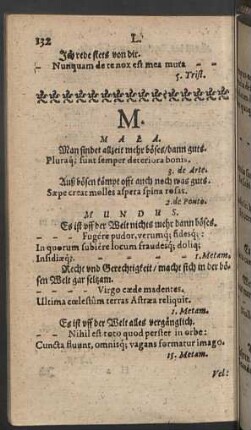 132 L.
Ich rede stets von dir.
– Nunquam de te nox est mea muta – –
5. Trist.
M.
MALA.
Man findet allzeit mehr böses/dann guts.
Pluraq; sunt semper deteriora bonis.
3. de Arte.
Auß bösen kompt offt auch noch was guts.
Sæpe creat molles aspera spina rosas.
2 de Ponto.
MUNDUS.
Es ist vff der Welt nichts mehr dann böses.
– – Fugére pudor, verumq; fidesq;:
In quorum subiére locum fraudesq; doliq;
Insidiæq;. – – – – 1. Metam.
Recht vnd Gerechtigkeit/ macht sich in der bö-
sen Welt gar seltzam.
– – – – Virgo cæde madentes,
Ultima cœlestûm terras Astræa reliquit.
1. Metam.
Es ist vff der Welt alles vergänglich.
– – Nihil est toto quod perstet in orbe:
Cuncta fluunt, omnisq; vagans formatur imago.
15. Metam.
Vel: